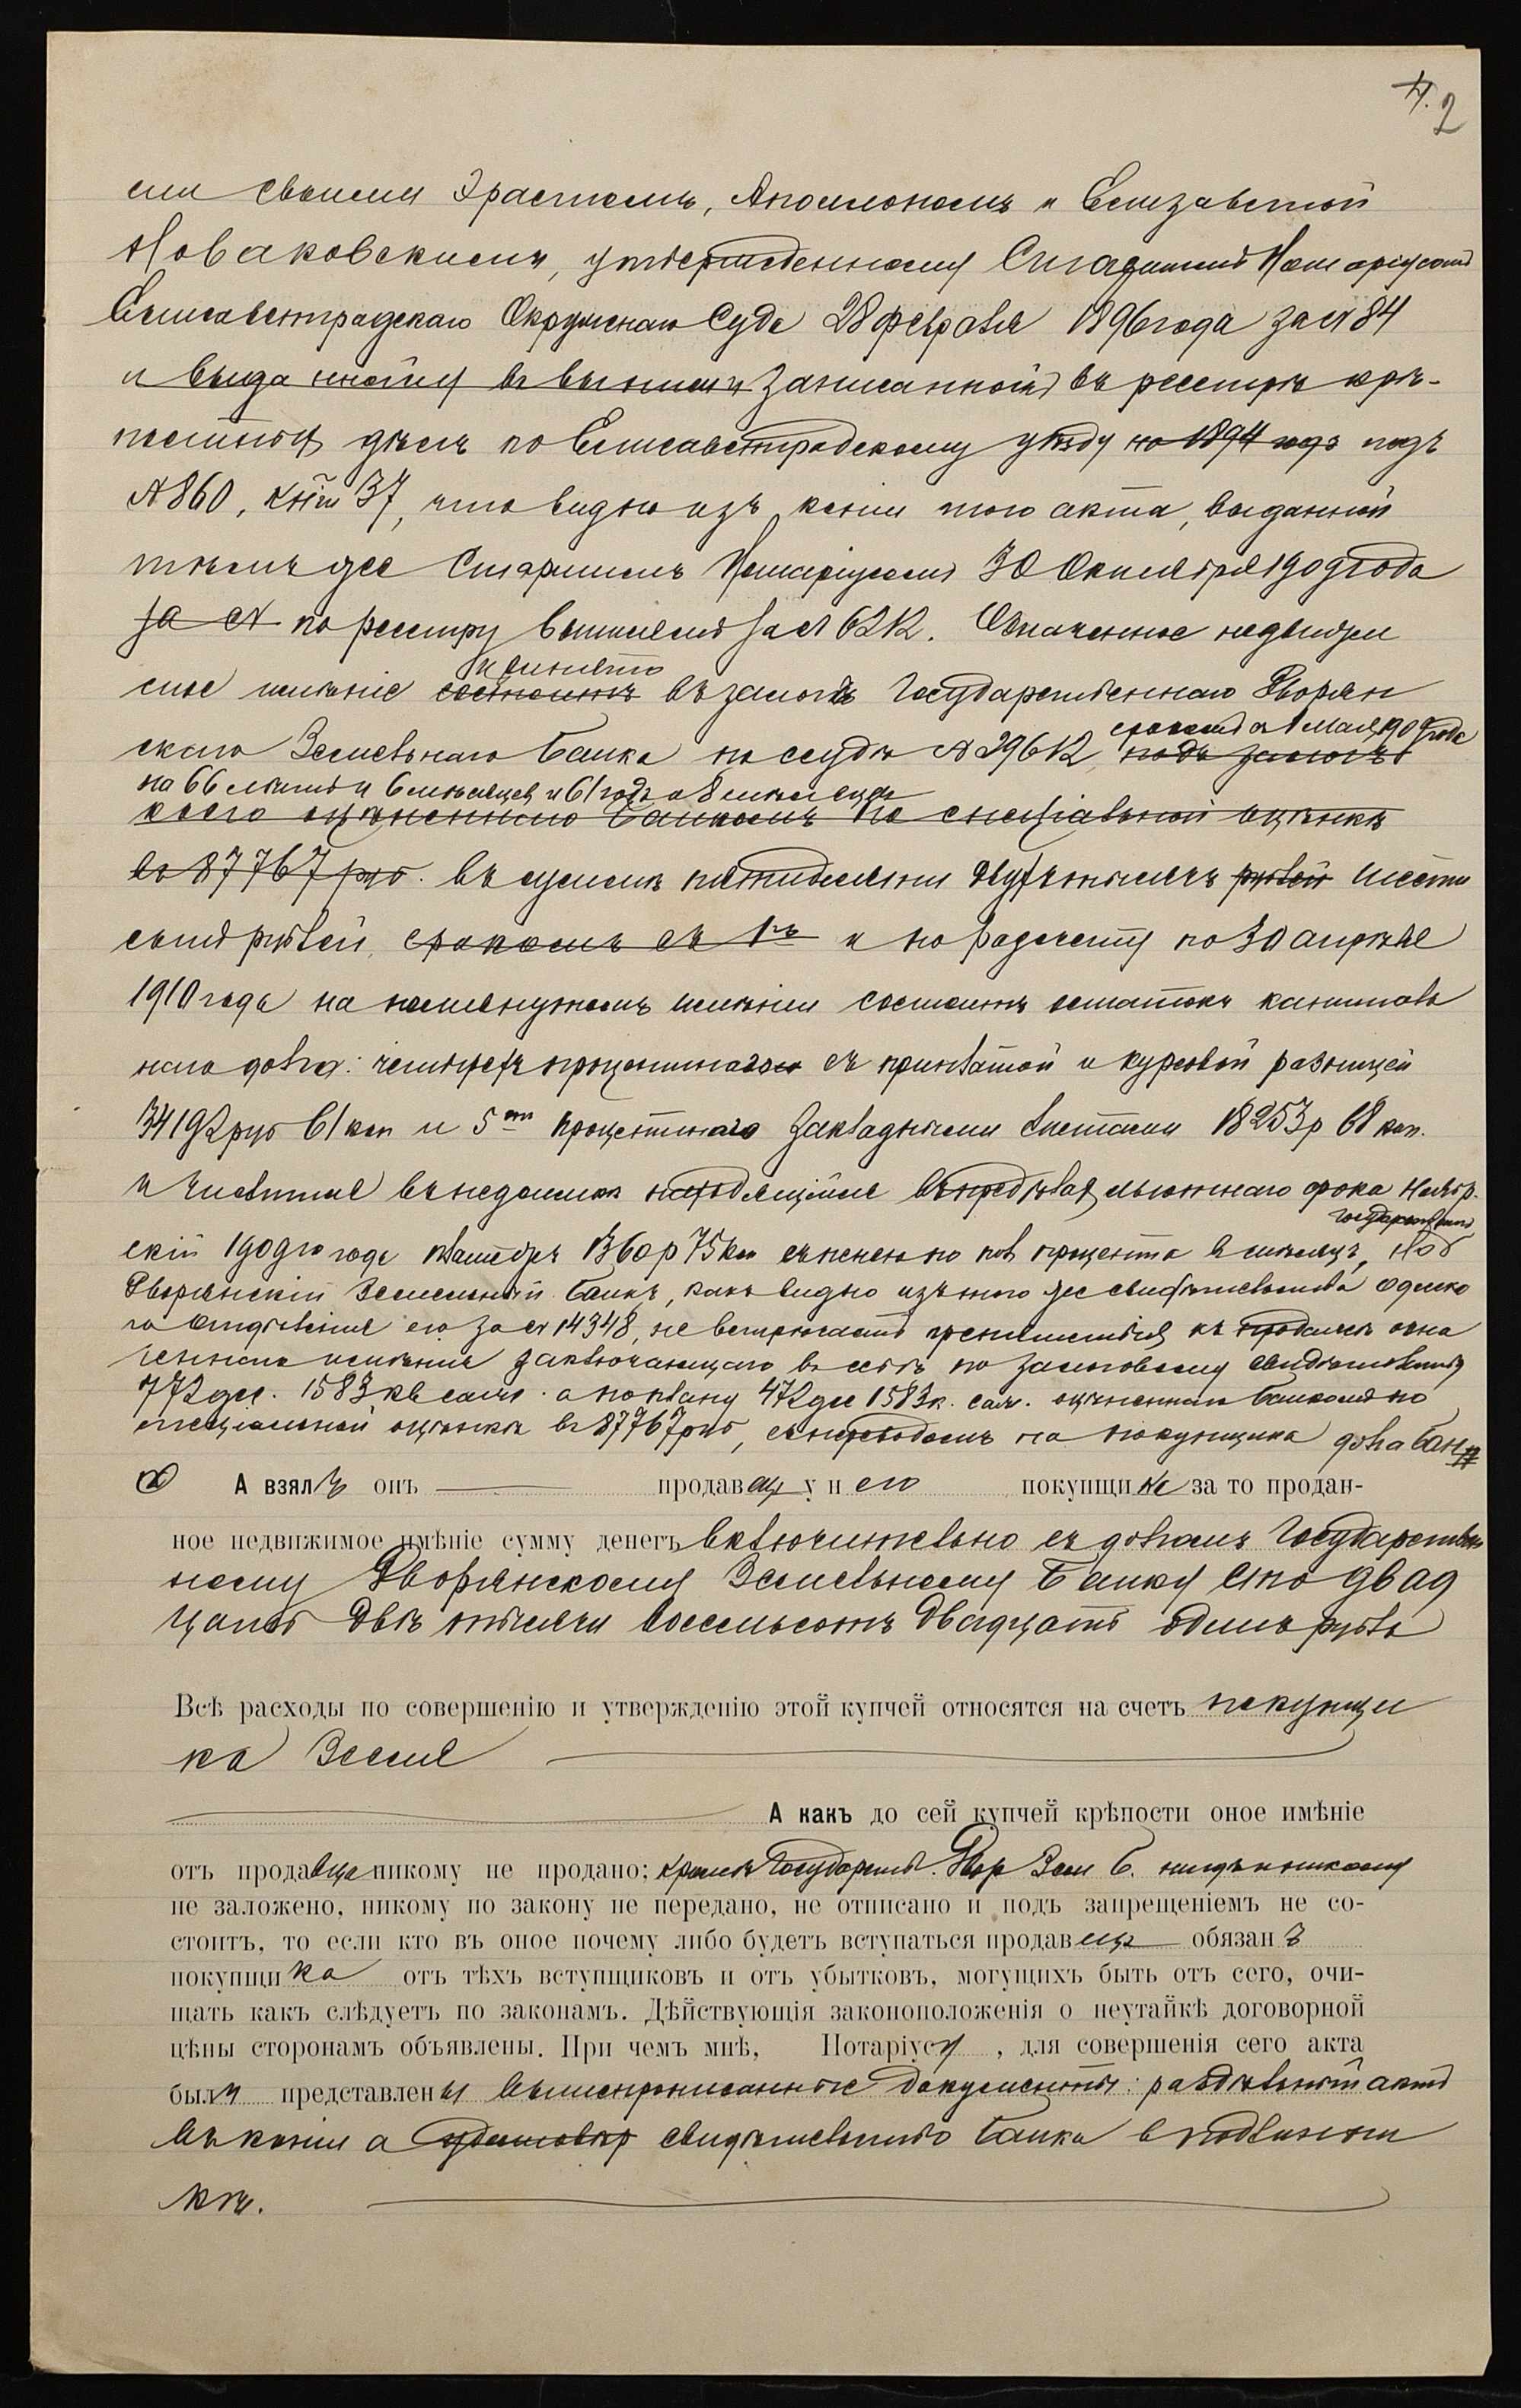 2
ми своими Эрастомъ, Аполлономъ и Елизаветой
Новаковскими, утвержденному Старшимъ Нотаріусомъ
Елисаветградскаго Окружнаго Суда 28 февраля 1896 года за № 84
и выданному въ выписи записанной въ реестръ крѣ-
постныхъ дѣлъ по Елисаветградскому уѣзду на 1894 годъ подъ
№ 860, кніги 37, что видно изъ копіи того акта, выданной
тѣмъ же Старшимъ Нотаріусомъ 30 Октября 1909 года
за № по реестру выписей за № 6212. Означенное недвижи
принято
мое имѣніе состоитъ въ залогѣ Государственнаго Дворян
срокомъ съ 1 Мая 1909 года
скаго Земельнаго Банка по ссудѣ № 29612, подъ залогъ
на 66 лѣтъ и 6 мѣсяцевъ и 61 годъ и 8 мѣсяцевъ
коего оцѣненнаго Банкомъ по спеціальной оцѣнкѣ
въ 87767 руб. въ суммѣ пятидесяти двухъ тысячъ рублей шести
сотъ рублей, срокомъ съ 1го и по разсчету по 30 апрѣля
1910 года на помянутомъ имѣніи состоитъ остатокъ капиталь
наго долга: четырехъ процентнаго съ приплатой и курсовой разницей
34192 руб 61 коп и 5ти процентнаго закладными листами 18253 р 68 коп.
и числится въ недоимкѣ находящійся въ предъ срока Ноябр.
Государственный
скій 1909го года платежъ 1360 р 75 коп съ пенею по пол процента въ мѣсяцъ, но
Дворянскій Земельный Банкъ, какъ видно изъ того же свидѣтельства Одесска
го Отдѣленія его за № 14348, не встрѣчаетъ препятствія къ продажѣ озна
ченнаго имѣнія заключающаго въ себѣ по залоговому свидѣтельству
772 дес. 1583 кв саж. а по плану 472 дес 1583 к. саж. оцѣненнаго Банкомъ по
спеціальной оцѣнкѣ въ 87767 руб, съ переводомъ на покупщика долга Банку
А взялъ онъ продавецъ у него покупщика за то продан-
ное недвижимое имѣніе сумму денегъ включительно съ долгомъ Государствен
ному Дворянскому Земельному Банку сто двад
цать двѣ тысячи восемьсотъ двадцать одинъ рубль
Всѣ расходы по совершенію и утвержденію этой купчей относятся на счетъ покупщи
ка Земля
А какъ до сей купчей крѣпости оное имѣніе
отъ продавца никому не продано; кромѣ Государств. Двор Зем Б. никому
не заложено, никому по закону не передано, не отписано и подъ запрещеніемъ не со-
стоитъ, то если кто въ оное почему либо будетъ вступаться продавецъ обязанъ
покупщика отъ тѣхъ вступщиковъ и отъ убытковъ, могущихъ быть отъ сего, очи-
щать какъ слѣдуетъ по законамъ. Дѣйствующія законоположенія о неутайкѣ договорной
цѣны сторонамъ объявлены. При чемъ мнѣ, Нотаріусу, для совершенія сего акта
были представлены вышепрописанные документы: раздѣльный актъ
въ копіи а свидѣтельство Банка въ подлинни
кѣ.